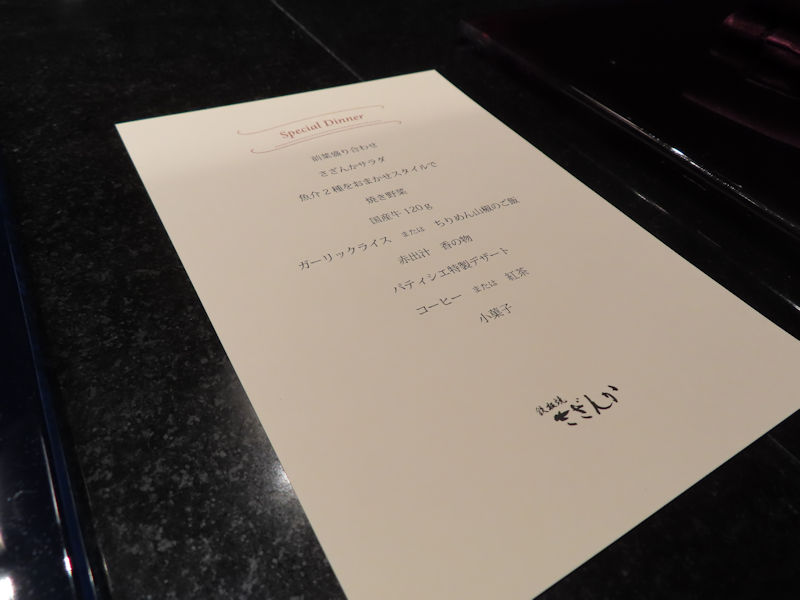 Special Dinner
前菜盛り合わせ
さざんかサラダ
魚介2種をおまかせスタイルで
焼き野菜
国産牛 120g
ガーリックライス または ちりめん山椒のご飯
赤出汁 香の物
パティシエ特製デザート
コーヒー または 紅茶
小菓子
鉄板焼
さざんか